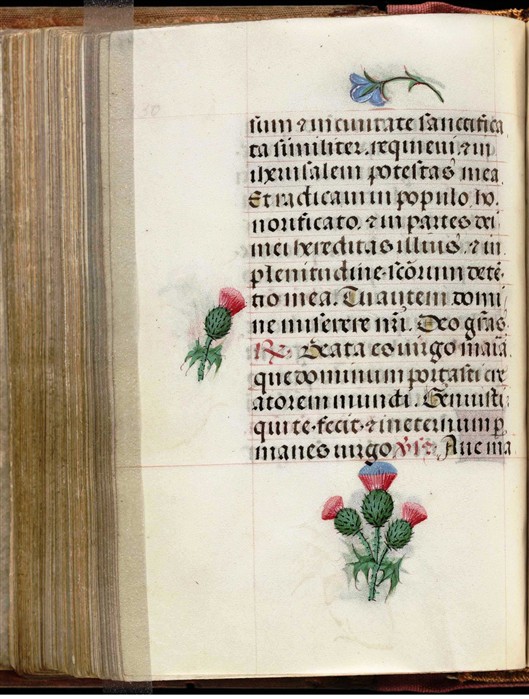 sum ⁊ in ciuitate sanctifica
ta similiter requieui ⁊ in
iherusalem potestas mea
Et radicaui in populo ho
norificato ⁊ in partes dei
mei hereditas illius ⁊ in
plenitudine sc̄orum dete
tio mea. Tu autem domi
ne miserere nr̄i. Deo gr̄as
R̸. Beata es uirgo maria
que dominum portasti cre
atorem mundi. Genuisti
qui te fecit ⁊ in eternum ꝑ
manes uirgo. Aue ma